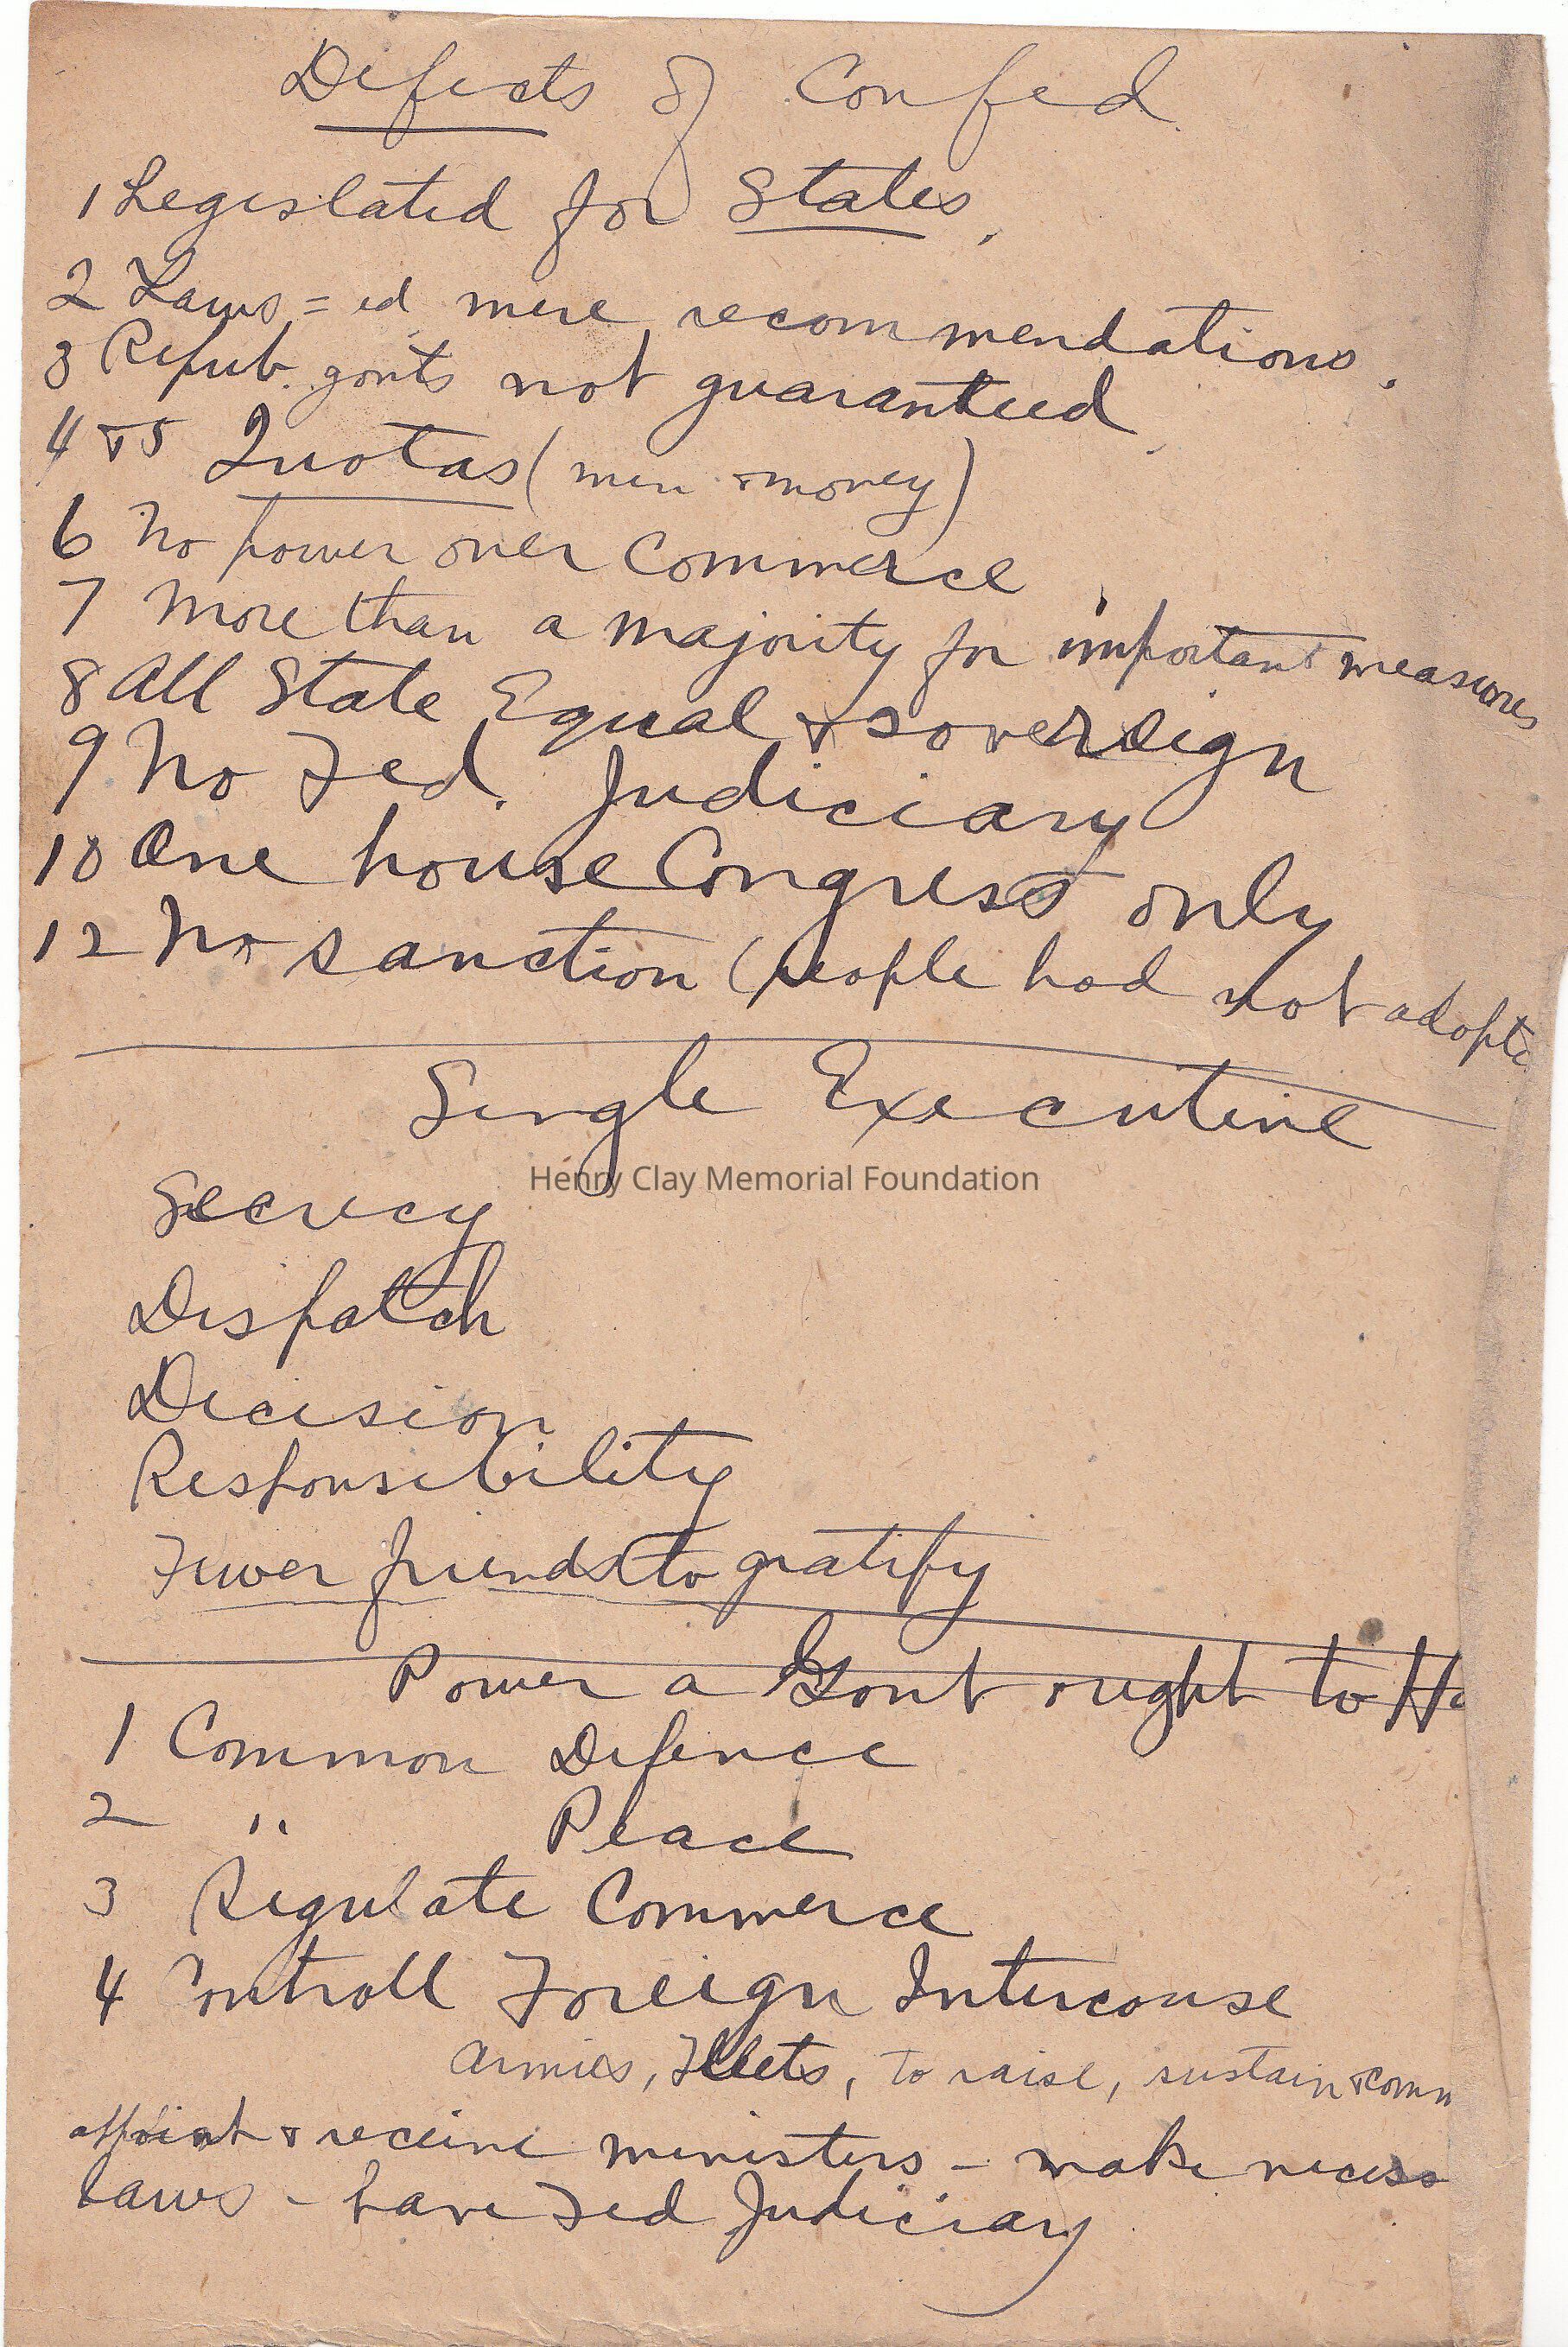 Defects of Confed.
1 Legislated for States.
2 Laws = ed mere recommendations.
3 Repub. govts not guaranteed.
4 & 5 Quotas (men & money)
6 No power over Commerce
7 More than a majority for important measures
8 All State Equal & sovereign
9 No Fed. Judiciary
10 One house Congress only
12 No sanction (people had not adopte
Single Executive
Henry Clay Memorial Foundation
Secrecy
Dispatch
Decision
Responsibility
Fewer friends to gratify
Power a Govt ought to Ha
1 Common Defence
2 " Peace
3 Regulate Commerce
4 Controll Foreign Intercouse
Armies, Fleets, to raise, sustain & comm
appoint & receive ministers - make necess
Laws - have Fed Judiciary